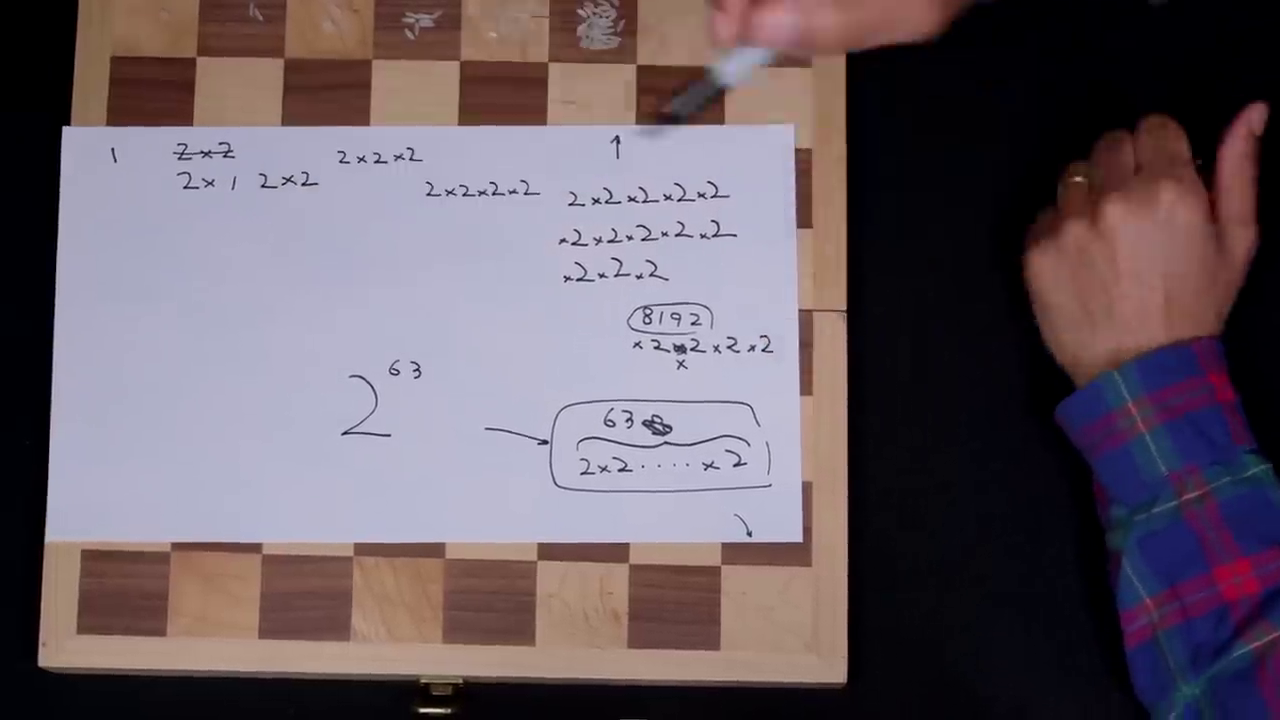 1 2×2 2×2×2
2×1 2×2 2×2×2×2 2×2×2×2×2
×2×2×2×2×2
×2×2×2
8192
×2×2×2×2
2⁶³
63
2×2·····×2